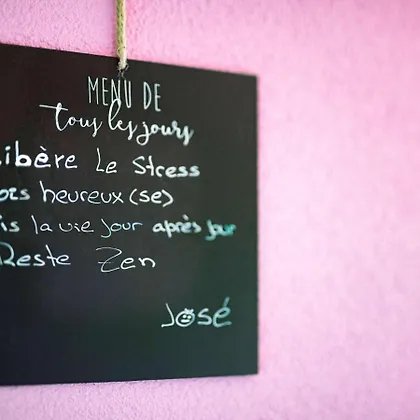 MENU DE
tous les jours
ibère Le Stress
ors heureux(se)
is la vie jour après jour
Reste Zen
José